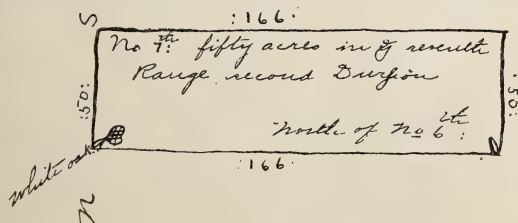 S
:166:
No 7th: fifty acres in ye seventh
Range second Divsion
:50:
:50:
North of No 6th:
white oak
:166:
N